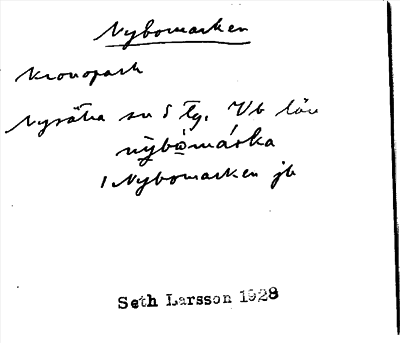 Nybomarken
Kronopark
Nysätra sn S Tg. Vb län
nỳbòmárka
1 Nybomarken jb
Seth Larsson 1928